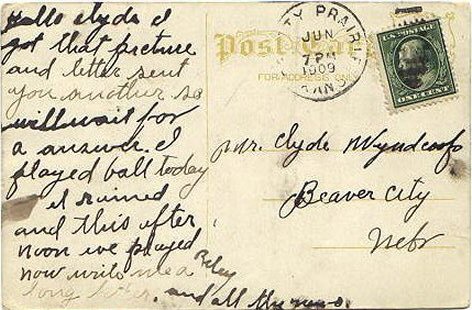 Hello Clyde I
got that picture
and letter sent
you another so
will wait for
a answer. I
played ball today
it rained
and this after
noon we played
now write me a
long letter. and all the news.
Post Card
FOR ADDRESS ONLY
TY PRAIRIE
JUN
7 PM
1909
KANS.
U.S. POSTAGE
ONE CENT
Mr. Clyde
Beaver City
Nebr